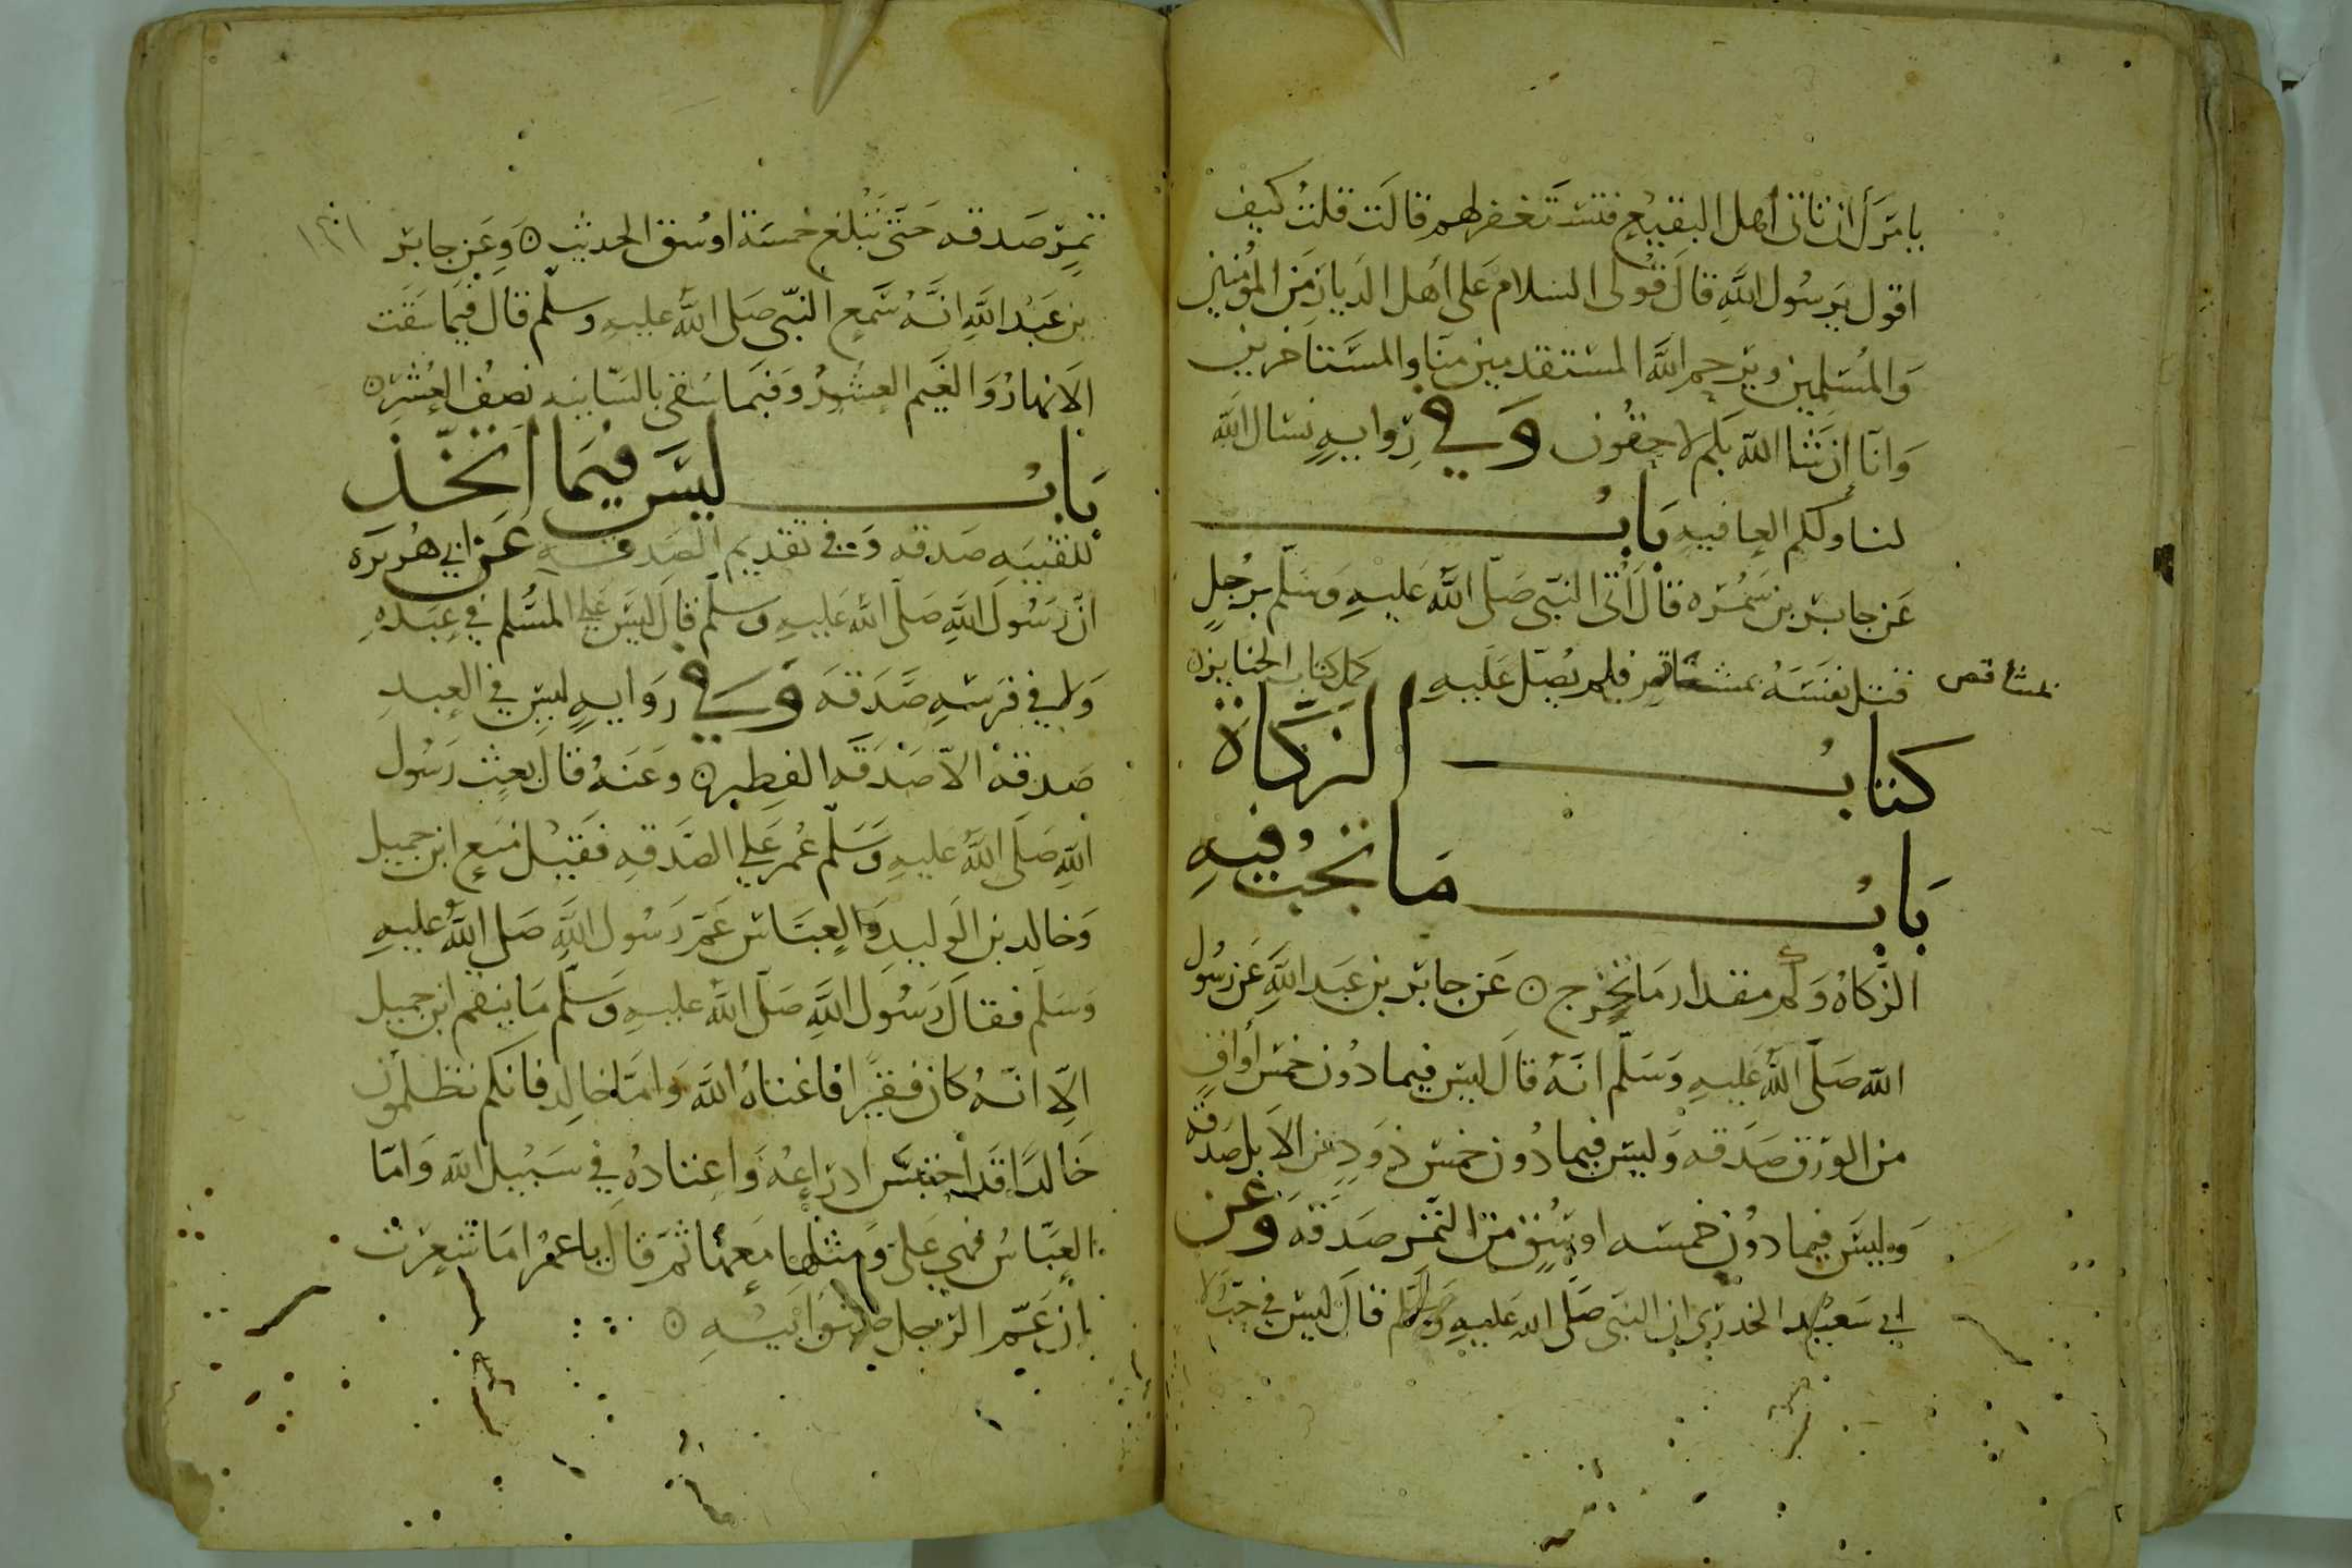 يامرك ان تاتى اهل البقيع فتستغفر لهم قالت قلت كيف
اقول يرسول الله قال قولى السلام على اهل الديار من المؤمنين
والمسلمين ويرحم الله المستقدمين منا والمستاخرين
وانا ان شا الله بكم لاحقون وفي رواية نسال الله
لنا ولكم العافيه باب
عن جابر بن سمره قال أتى النبي صلى الله عليه وسلم برجل
قتل نفسه بمشاقص فلم يصل عليه كمل كتاب الجنايز
بمشاقص
كتاب الزكاة
باب ما تجب فيه
الزكاة وكم مقدار ما تخرج ن عن جابر بن عبد الله عن رسول
الله صلى الله عليه وسلم انه قال ليس فيما دون خمس أواق
من الورق صدقه وليس فيما دون خمس ذود من الابل صدقه
وليس فيما دون خمسه اوسق من التمر صدقه وعن
ابي سعيد الخدري ان النبي صلى الله عليه وسلم قال ليس في حب ولا
تمر صدقه حتى تبلغ خمسة اوسق الحديث ن وعن جابر
بن عبد الله انه سمع النبي صلى الله عليه وسلم قال فيما سقت
الانهار والغيم العشور وفيما سقى بالسانيه نصف العشر ن
باب ليس فيما اتخذ
للقنيه صدقه وفى تقديم الصدقة عن ابي هريره
ان رسول الله صلى الله عليه وسلم قال ليس علي المسلم في عبده
ولا في فرسه صدقه وفي رواية ليس في العبد
صدقة الا صدقه الفطر ن وعنه قال بعث رسول
الله صلى الله عليه وسلم عمر علي الصدقه فقيل منع ابن جميل
وخالد بن الوليد والعباس عم رسول الله صلى الله عليه
وسلم فقال رسول الله صلى الله عليه وسلم ما ينقم ابن جميل
الا انه كان فقيرا فاغناه الله واما خالد فانكم تظلمون
خالدا قد احتبس ادراعه واعتاده في سبيل الله واما
العباس فهي على ومثلها معها ثم قال يا عمر اما شعرت
ان عم الرجل صنو ابيه ن